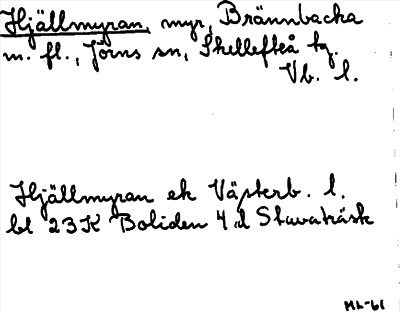 Hjällmyran, myr, Brännbacka
m. fl., Jörns sn, Skellefteå tg.
Vb. l.
Hjällmyran ek Västerb. l.
bl 23K Boliden 4d Stavaträsk
ML-61